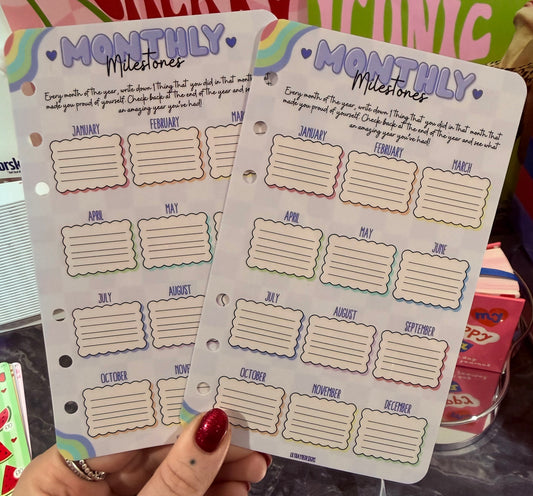 ICONIC
MONTHLY
Milestones
Every month of the year, write down 1 thing that you did in that month
made you proud of yourself. Check back at the end of the year and see
an amazing year you've had!
JANUARY
FEBRUARY
MAR
APRIL
MAY
JULY
AUGUST
OCTOBER
NOVE
MONTHLY
Milestones
Every month of the year, write down 1 thing that you did in that month that
made you proud of yourself. Check back at the end of the year and see what
an amazing year you've had!
JANUARY
FEBRUARY
MARCH
APRIL
MAY
JUNE
JULY
AUGUST
SEPTEMBER
OCTOBER
NOVEMBER
DECEMBER